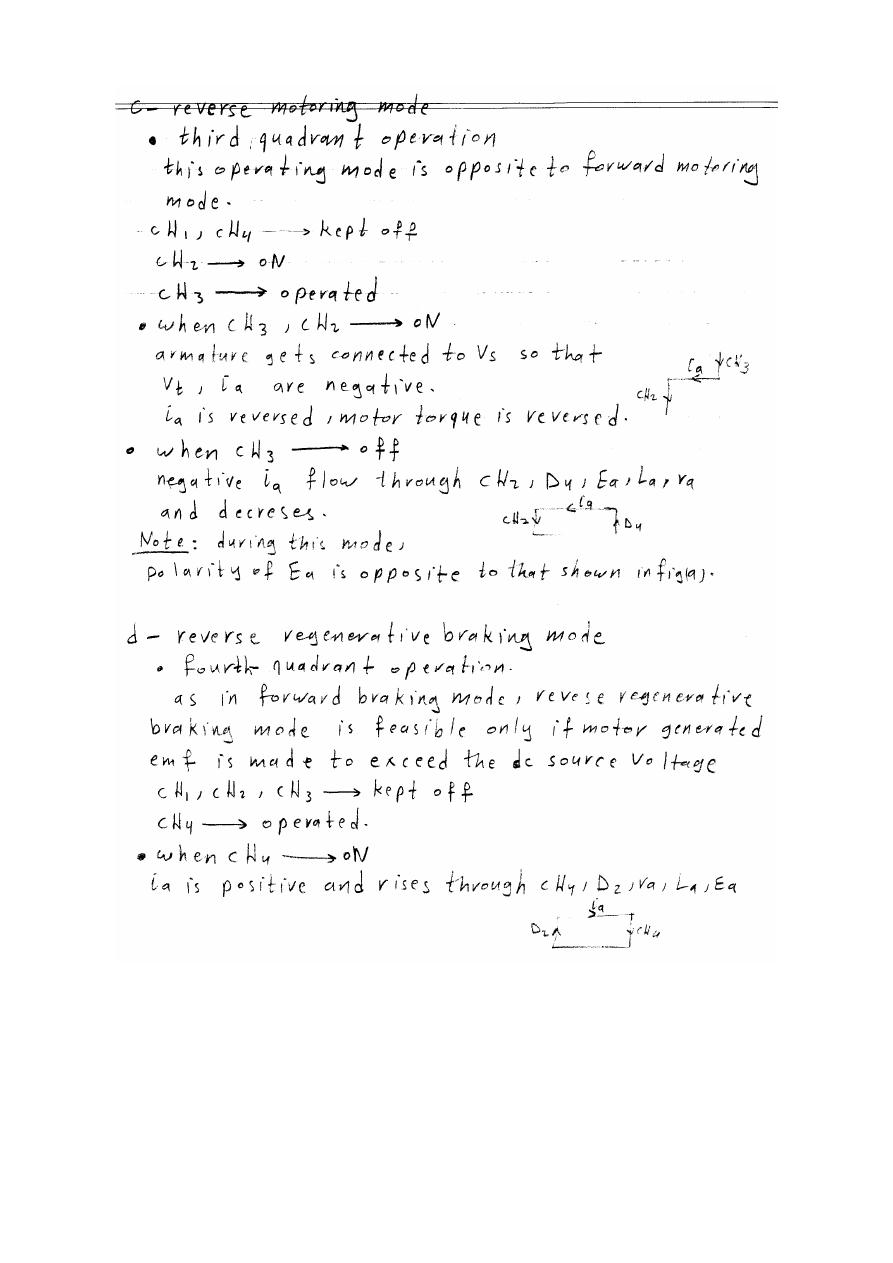 c- reverse motoring mode
• third quadrant operation
this operating mode is opposite to forward motoring
mode.
CH1, CH4 → kept off
CH2 → ON
CH3 → operated
• when CH3, CH2 → ON
armature gets connected to Vs so that
ia CH3
Vt, ia are negative.
CH2
ia is reversed, motor torque is reversed.
• when CH3 → off
negative ia flow through CH2, D4, Ea, La, ra
and decreses.
ia
CH2 D4
Note: during this mode,
polarity of Ea is opposite to that shown in fig(a).
d- reverse regenerative braking mode
• fourth quadrant operation.
as in forward braking mode, revese regenerative
braking mode is feasible only if motor generated
emf is made to exceed the dc source voltage
CH1, CH2, CH3 → kept off
CH4 → operated.
• when CH4 → ON
ia is positive and rises through CH4, D2, ra, La, Ea
ia
D2 CH4